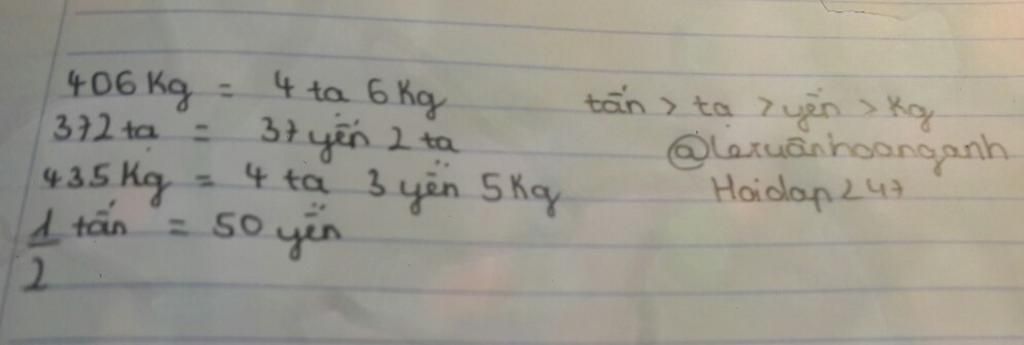 406 Kg = 4 tạ 6 Kg
372 tạ = 37 yến 2 tạ
435 Kg = 4 tạ 3 yến 5 Kg
1/2 tấn = 50 yến
tấn > tạ > yến > Kg
@lexuanhoanganh
Hoidap247